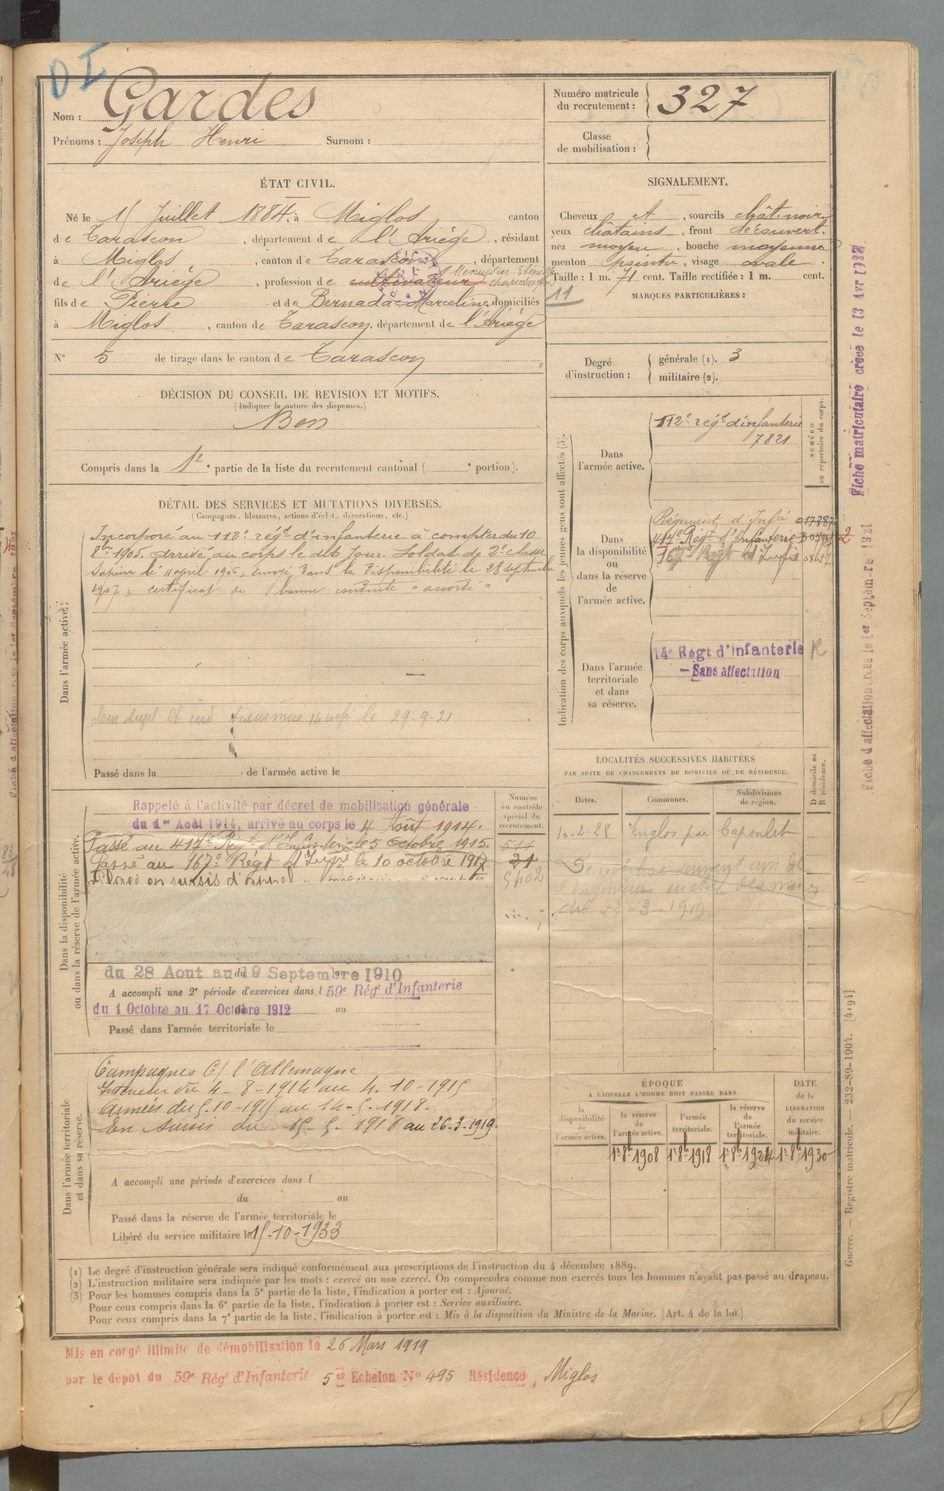 OI
Nom : Gardes
Prénoms : Joseph Henri Surnom :
Numéro matricule du recrutement : 327
Classe de mobilisation :
ÉTAT CIVIL.
Né le 15 Juillet 1884, à Miglos, canton
de Tarascon, département de l'Ariège, résidant
à Miglos, canton de Tarascon, département
de l'Ariège, profession de cultivateur
fils de Pierre et de Bernadac Marceline, domiciliés
à Miglos, canton de Tarascon, département de l'Ariège
N° 5 de tirage dans le canton de Tarascon
SIGNALEMENT.
Cheveux et, sourcils chât. noir
yeux châtains, front découvert.
nez moyen, bouche moyenne
menton pointu, visage ovale.
Taille : 1 m. 71 cent. Taille rectifiée : 1 m. cent.
11
MARQUES PARTICULIÈRES :
Degré d'instruction : générale (1). 3
militaire (2).
DÉCISION DU CONSEIL DE REVISION ET MOTIFS.
(Indiquer la nature des dispenses.)
Bon
Compris dans la 1re partie de la liste du recrutement cantonal ( e portion).
DÉTAIL DES SERVICES ET MUTATIONS DIVERSES.
(Campagnes, blessures, actions d'éclat, décorations, etc.)
Dans l'armée active.
Incorporé au 112e régt d'infanterie à compter du 10
8bre 1905. arrivé au corps le dit jour. Soldat de 2e classe
Sapeur le 11 april 1906, envoyé dans la disponibilité le 28 septembre
1907; certificat de "bonne conduite" accordé
le 29-9-21
Passé dans la de l'armée active le
Indication des corps auxquels les jeunes gens sont affectés (3).
NUMÉRO au répertoire du corps.
Dans l'armée active.
112e régt d'infanterie
7821
Dans la disponibilité ou dans la réserve de l'armée active.
Régiment d'Infie
417e Régt d'Infanterie
167e Régt d'Infie
Dans l'armée territoriale et dans sa réserve.
14e Régt d'Infanterie R
— Sans affectation
LOCALITÉS SUCCESSIVES HABITÉES
PAR SUITE DE CHANGEMENTS DE DOMICILE OU DE RÉSIDENCE.
Dates. Communes. Subdivisions de région. D domicile ou R résidence.
10-2-28 Miglos par Capoulet
22-3-1919
Dans la disponibilité ou dans la réserve de l'armée active.
Numéro au contrôle spécial du recrutement.
Rappelé à l'activité par décret de mobilisation générale
du 1er Août 1914, arrivé au corps le 4 Août 1914.
Passé au 417e Régt d'Infanterie le 5 octobre 1915.
Passé au 167e Régt d'Infie le 10 octobre 1917
du 28 Aout au 19 Septembre 1910
A accompli une 2e période d'exercices dans l 59e Régt d'Infanterie
du 1 Octobre au 17 Octobre 1912
Passé dans l'armée territoriale le
Dans l'armée territoriale et dans sa réserve.
Campagnes C/ l'Allemagne
Intérieur du 4-8-1914 au 4.10-1915
Armées du 5.10-1915 au 14-5-1918.
En sursis du 15-5-1918 au 26-3-1919.
A accompli une période d'exercices dans l
du au
Passé dans la réserve de l'armée territoriale le
Libéré du service militaire le 15-10-1933
ÉPOQUE
À LAQUELLE L'HOMME DOIT PASSER DANS
la disponibilité de l'armée active.
la réserve de l'armée active.
l'armée territoriale.
la réserve de l'armée territoriale.
DATE de la LIBÉRATION du service militaire.
1er 8bre 1908 1er 8bre 1918 1er 8bre 1924 1er 8bre 1930
(1) Le degré d'instruction générale sera indiqué conformément aux prescriptions de l'instruction du 4 décembre 1889.
(2) L'instruction militaire sera indiquée par les mots : exercé ou non exercé. On comprendra comme non exercés tous les hommes n'ayant pas passé au drapeau.
(3) Pour les hommes compris dans la 5e partie de la liste, l'indication à porter est : Ajourné.
Pour ceux compris dans la 6e partie de la liste, l'indication à porter est : Service auxiliaire.
Pour ceux compris dans la 7e partie de la liste, l'indication à porter est : Mis à la disposition du Ministre de la Marine. (Art. 4 de la loi.)
Mis en congé illimité de démobilisation le 26 Mars 1919
par le dépôt du 59e Régt d'Infanterie 5e Echelon N° 495 Résidence, Miglos
Fiche matriculaire créée le 13 Avr 1932
Fiche d'affectation créée le 1er Septembre 1931
Guerre. — Registre matricule. — 232-89-1904. [4194]